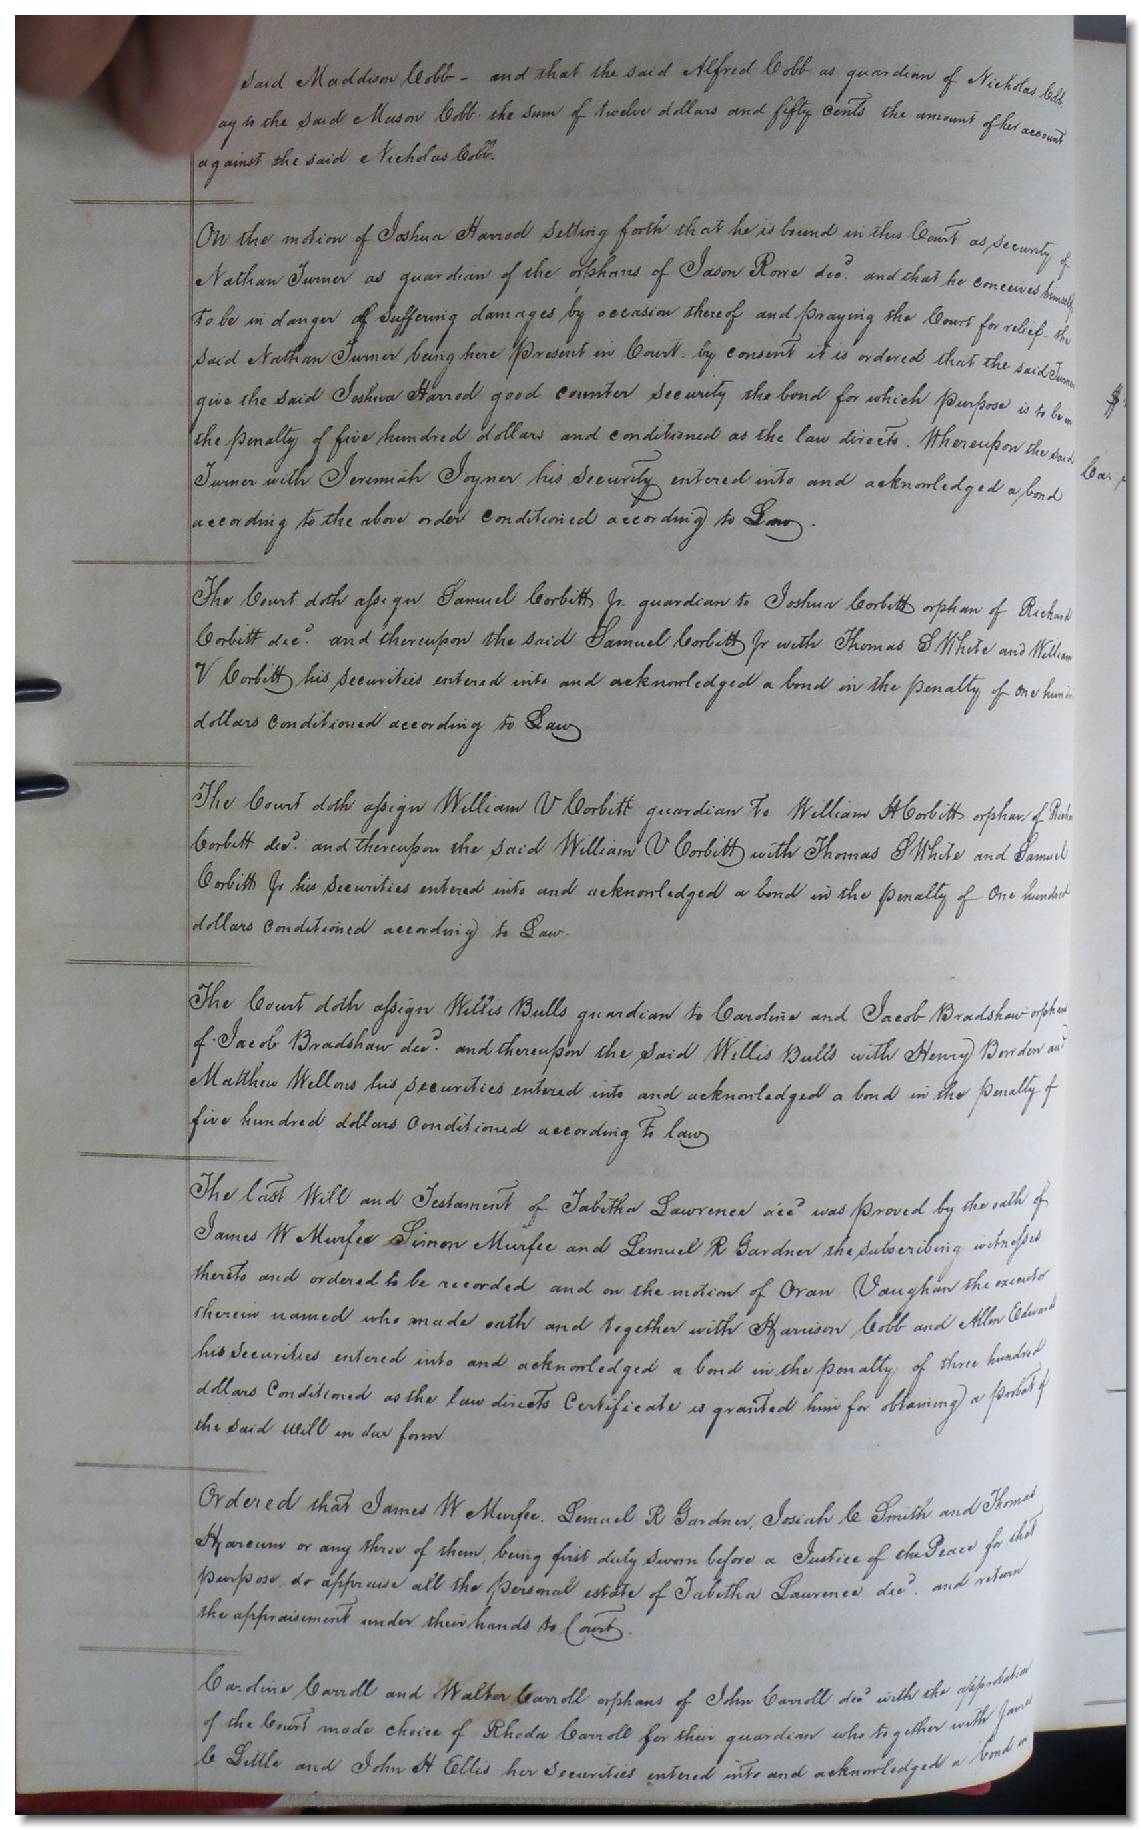 said Maddison Cobb - and that the said Alfred Cobb as guardian of Nicholas Cobb
ay to the said Mason Cobb the sum of twelve dollars and fifty cents the amount of her account
against the said Nicholas Cobb.
On the motion of Joshua Harrod setting forth that he is bound in this Court as security of
Nathan Turner as guardian of the orphans of Jason Rowe decd. and that he conceives himself
to be in danger of suffering damages by occasion thereof and praying the Court for relief - the
said Nathan Turner being here present in Court - by consent it is ordered that the said Turner
give the said Joshua Harrod good counter security the bond for which purpose is to be in
the penalty of five hundred dollars and conditioned as the law directs. Whereupon the said
Turner with Jeremiah Joyner his security entered into and acknowledged a bond
according to the above order conditioned according to Law.
The Court doth assign Samuel Corbitt Jr. guardian to Joshua Corbitt orphan of Richard
Corbitt decd. and thereupon the said Samuel Corbitt Jr with Thomas S White and William
V Corbitt his securities entered into and acknowledged a bond in the penalty of one hund
dollars conditioned according to Law
The Court doth assign William V Corbitt guardian to William H Corbitt orphan of
Corbitt decd. and thereupon the said William V Corbitt with Thomas S White and Samuel
Corbitt Jr his securities entered into and acknowledged a bond in the penalty of One hundred
dollars conditioned according to Law.
The Court doth assign Willis Bulls guardian to Caroline and Jacob Bradshaw orphans
of Jacob Bradshaw decd. and thereupon the said Willis Bulls with Henry Bowden and
Matthew Wellons his securities entered into and acknowledged a bond in the penalty of
five hundred dollars conditioned according to law
The last Will and Testament of Tabitha Lawrence decd was proved by the oath of
James W Murfee Simon Murfee and Lemuel R Gardner the subscribing witnesses
thereto and ordered to be recorded and on the motion of Oran Vaughan the executor
therein named who made oath and together with Harrison Cobb and Allen Edwards
his securities entered into and acknowledged a bond in the penalty of three hundred
dollars Conditioned as the law directs Certificate is granted him for obtaining a probat of
the said Will in due form
Ordered that James W Murfee, Lemuel R Gardner, Josiah C Smith and Thomas
Harcum or any three of them, being first duly sworn before a Justice of the Peace for that
purpose, do appraise all the personal estate of Tabitha Lawrence decd. and return
the appraisement under their hands to Court.
Caroline Carroll and Walter Carroll orphans of John Carroll decd with the approbation
of the Court made choice of Rhoda Carroll for their guardian who together with James
C Little and John H Ellis her securities entered into and acknowledged a bond in